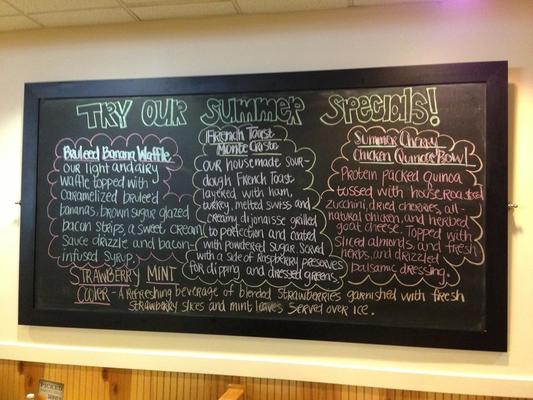 TRY OUR SUMMER SPECIALS!
Bruleed Banana Waffle
Our light and airy
waffle topped with
caramelized bruleed
bananas, brown sugar glazed
bacon strips, a sweet cream
sauce drizzle and bacon-
infused syrup.
French Toast
Monte Cristo
Our housemade sour-
dough French Toast
layered with ham,
turkey, melted swiss and
creamy dijonaisse grilled
to perfection and coated
with powdered sugar. Served
with a side of Raspberry preserves
for dipping, and dressed greens.
Summer Cherry
Chicken Quinoa Bowl
Protein packed quinoa
tossed with house roasted
zucchini, dried cherries, all-
natural chicken, and herbed
goat cheese. Topped with
sliced almonds, and fresh
herbs, and drizzled
balsamic dressing.
STRAWBERRY MINT
COOLER - A Refreshing beverage of blended strawberries garnished with fresh
strawberry slices and mint leaves. Served over ice.